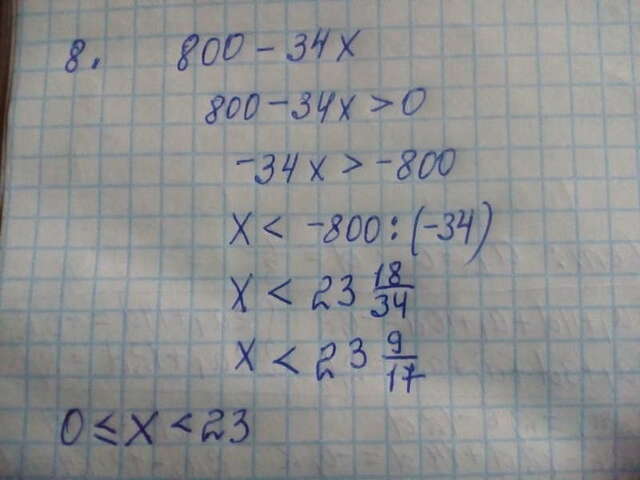 8. 800 - 34x
800 - 34x > 0
-34x > -800
x < -800 : (-34)
x < 23 18/34
x < 23 9/17
0 ≤ x < 23